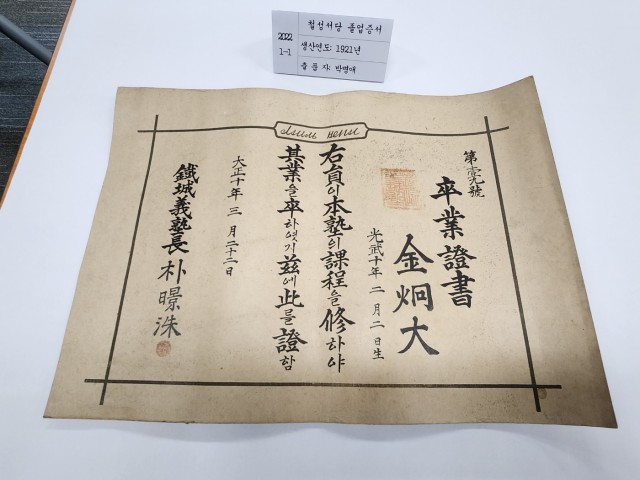 2022
1-1
철성서당 졸업증서
생산연도: 1921년
출 품 자: 박명애
第壹九號
卒業證書
金炯大
光武十年 二月二日生
右員이本塾의課程을修하야
其業을卒하엿기玆에此를證함
大正十年 三月二十二日
鐵城義塾長 朴暻洙